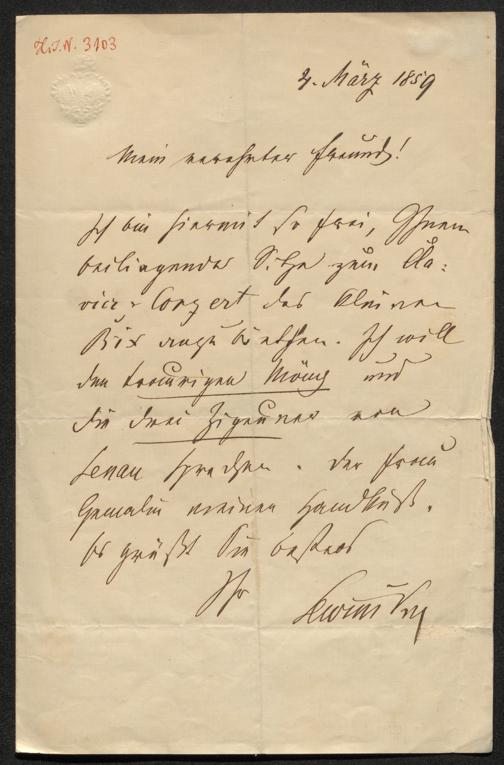 H.I.N. 3103
4. März 1859
Mein verehrter Freund!
Ich bin hiermit so frei, Ihnen
beiliegende Sitze zum Cla-
vier-Conzert des kleinen
anzubiethen. Ich will
den traurigen Mönch und
die drei Zigeuner von
Lenau sprechen. Der Frau
Gemalin meinen Handkuß.
Es grüßt Sie bestens
Ihr Lewinsky